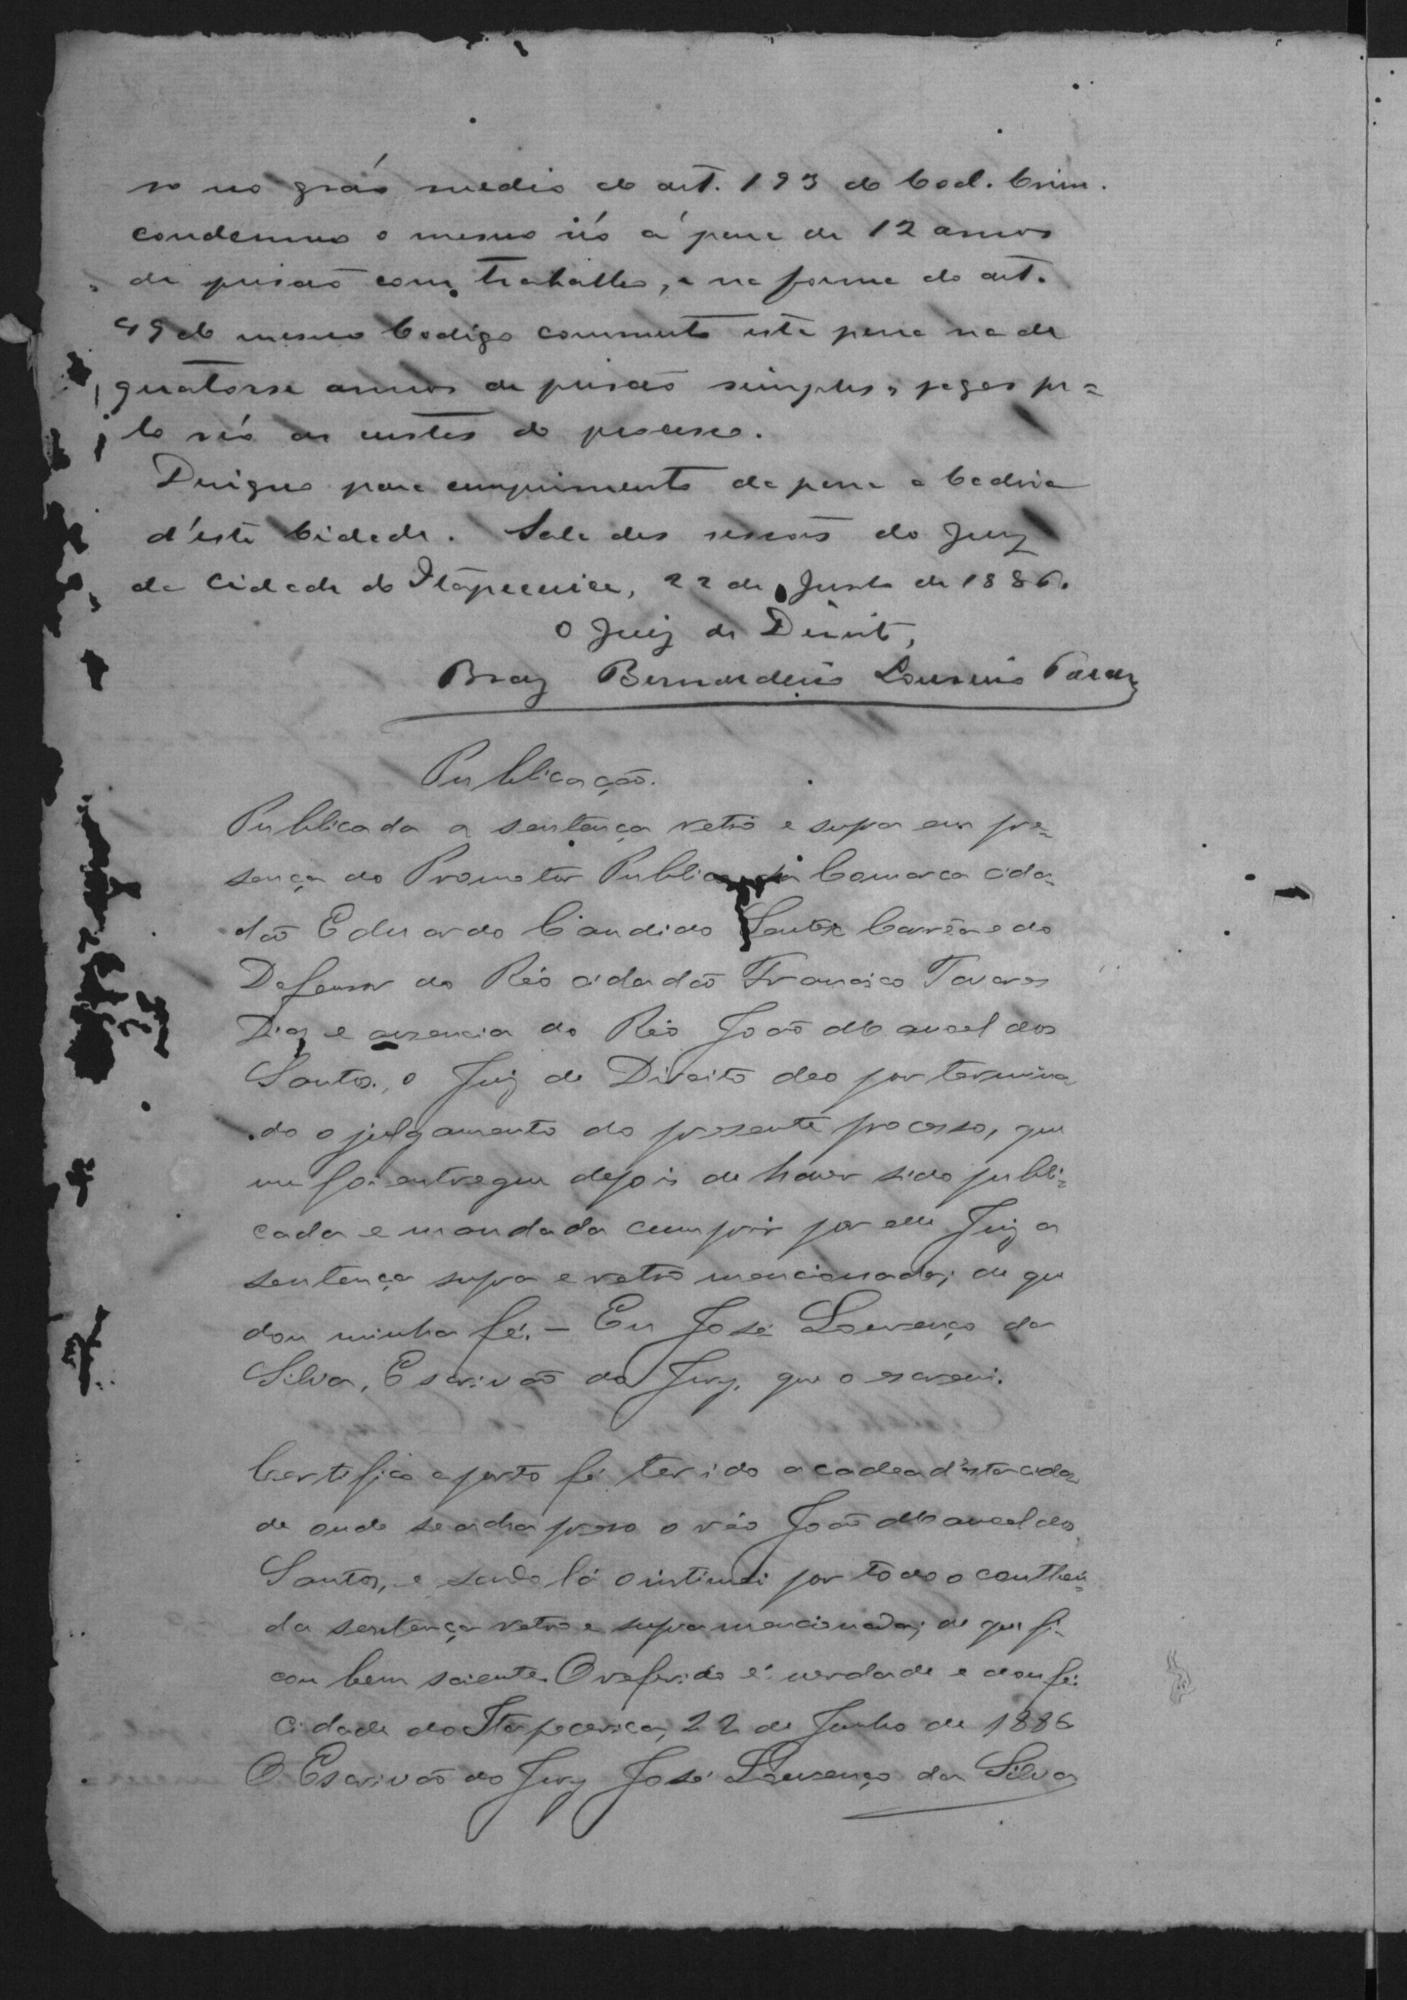 so no gráo medio do art. 193 do Cod. Crim.
condemno o mesmo réo á pena de 12 annos
de prisão com trabalho, e na forma do art.
49 do mesmo Codigo commuto esta pena na de
quatorse annos de prisão simples, pagas pe=
lo réo as custas do processo.
Designo para cumprimento da pena a Cadeia
d'esta Cidade. Sala das sessões do Jury
da Cidade de Itapecerica, 22 de Junho de 1886.
O Juiz de Direito,
Braz Bernardino Loureiro
Publicação.
Publicada a sentença retro e supra em pre=
sença do Promotor Publico da Comarca cida-
dão Eduardo Candido e do
Defensor do Réo cidadão Francisco Tavares
Dias e ausencia do Réo João Manoel dos
Santos, o Juiz de Direito deo por termina
do o julgamento do presente processo, que
me foi entregue depois de haver sido publi=
cada e mandada cumprir por elle Juiz a
sentença supra e retro mencionada; de que
dou minha fé. — Eu José Lourenço da
Silva, Escrivão do Jury, que o escrevi.
Certifico e porto fé ter ido a cadea d'esta cida
de onde se acha preso o réo João Manoel dos
Santos, e sendo lá o intimei por todo o conthei=
da sentença retro e supra mencionada; de que fi-
cou bem sciente. O referido é verdade e dou fé.
Cidade de Itapecerica, 22 de Junho de 1886
O Escrivão do Jury José Lourenço da Silva